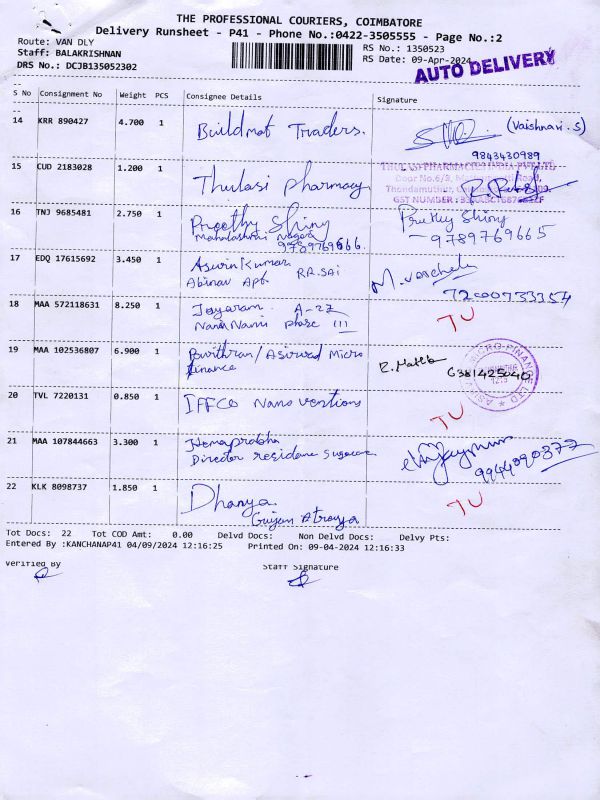 THE PROFESSIONAL COURIERS, COIMBATORE
Delivery Runsheet - P41 - Phone No.:0422-3505555 - Page No.:2
Route: VAN DLY
Staff: BALAKRISHNAN
DRS No.: DCJB135052302
RS No.: 1350523
RS Date: 09-Apr-2024
AUTO DELIVERY
S No Consignment No Weight PCS Consignee Details Signature
14 KRR 890427 4.700 1 Buildmat Traders. (Vaishnavi.S)
9843430989
15 CUD 2183028 1.200 1 Thulasi pharmacy
THULASI PHARMACIES INDIA PVT LTD
Door No.6/3, Road,
Thondamuthur,
GST NUMBER :
16 TNJ 9685481 2.750 1 Preethy Shiny
Mahalashmi Nagar
9789769666.
Preethy Shiny
- 9789769665
17 EDQ 17615692 3.450 1 Aswin Kumar
Abinav Apt. RR.SAI
18 MAA 572118631 8.250 1 Jayaram. A-27
NanaNanu phase III
TU
19 MAA 102536807 6.900 1 Pavithran/Asirvad Micro
finance
6381425040
MICRO-FINANCE LTD
20 TVL 7220131 0.850 1 IFFCO Nano ventions
TU
21 MAA 107844663 3.300 1 Hemaprabha
Director residane
9944090377
22 KLK 8098737 1.850 1 Dhanya
Gujan Atroya
TU
Tot Docs: 22 Tot COD Amt: 0.00 Delvd Docs: Non Delvd Docs: Delvy Pts:
Entered By :KANCHANAP41 04/09/2024 12:16:25 Printed On: 09-04-2024 12:16:33
Verified By Staff Signature